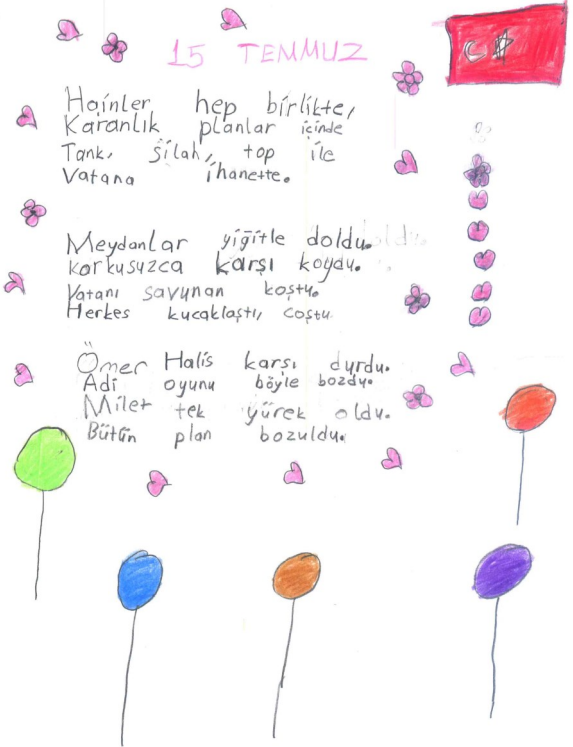 15 TEMMUZ
Hainler hep birlikte,
Karanlık planlar içinde
Tank, silah, top ile
Vatana ihanette.
Meydanlar yiğitle doldu.
korkusuzca karşı koydu.
Vatanı savunan koştu.
Herkes kucaklaştı, coştu.
Ömer Halis karşı durdu.
Adi oyunu böyle bozdu.
Milet tek yürek oldu.
Bütün plan bozuldu.